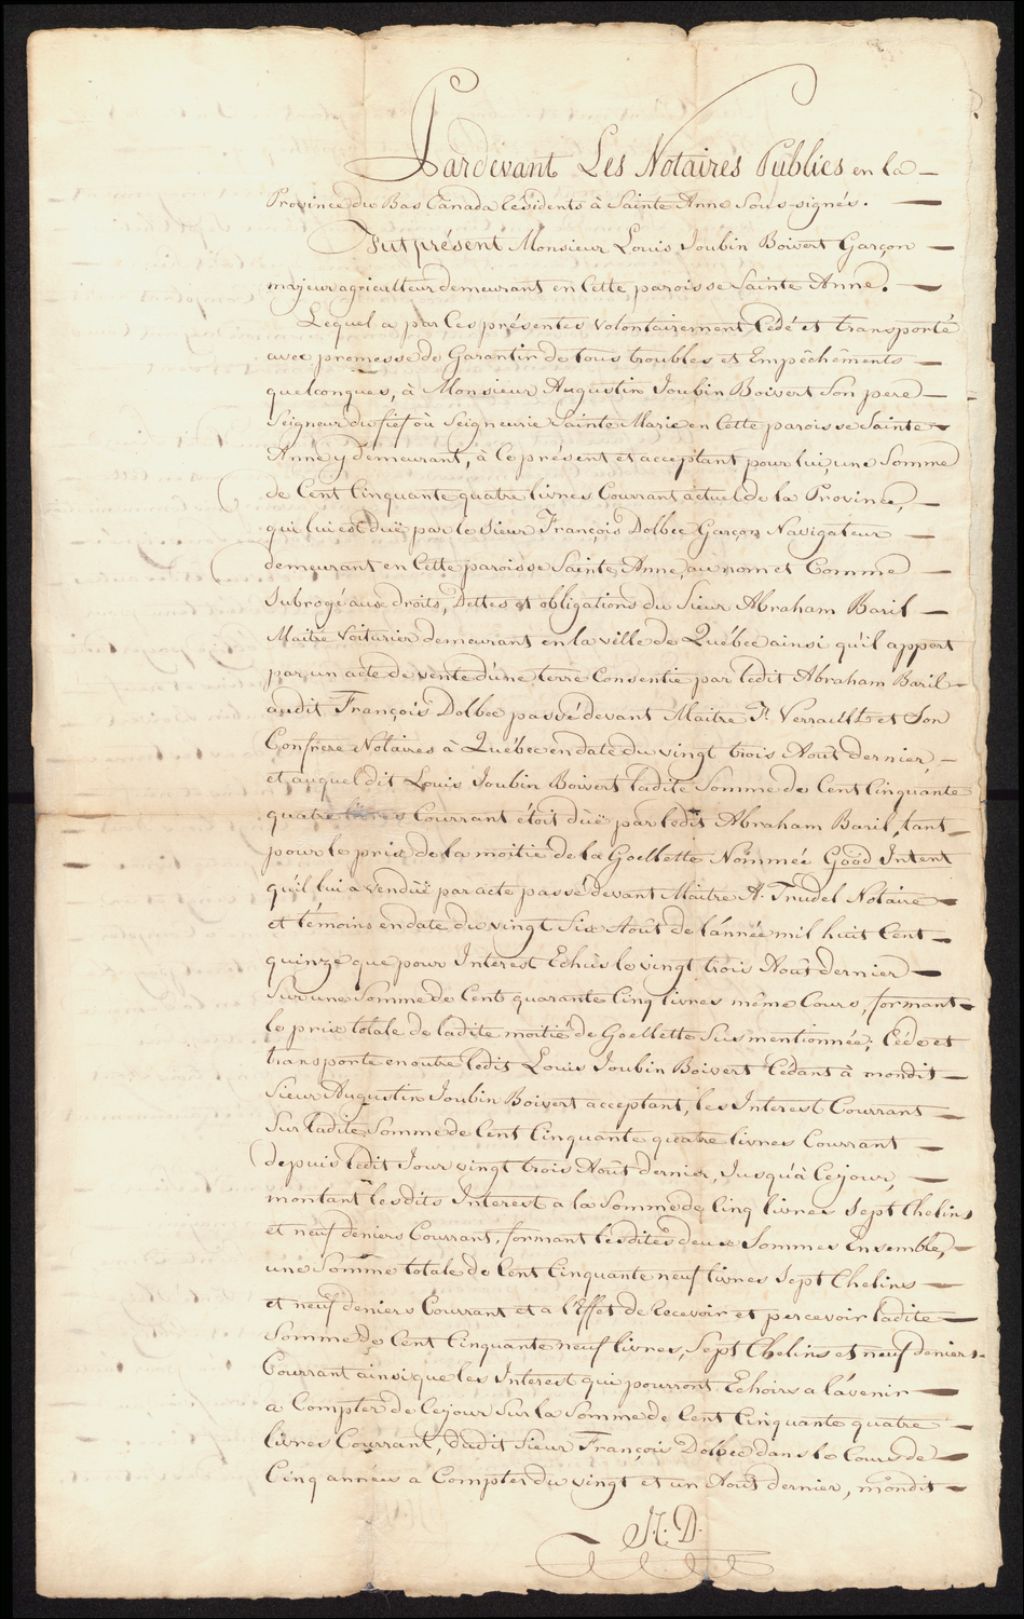 Pardevant Les Notaires Publics en la —
Province du Bas Canada Résidents à Sainte Anne Sous-signés. —
Fut présent Monsieur Louis Joubin Boivert Garçon —
majeur agriculteur demeurant en Cette paroisse Sainte Anne. —
Lequel a par Ces présentes volontairement Cédé et transporté
avec promesse de Garantir de tous troubles et Empêchêments —
quelconques, à Monsieur Augustin Joubin Boivert Son pere —
Seigneur du fief où Seigneurie Sainte Marie en Cette paroisse Sainte —
Anne y demeurant, à Ce présent et acceptant pour lui, une Somme
de Cent Cinquante quatre livres Courrant actuel de la Province, —
qui lui est duë par le Sieur François Dolbec Garçon Navigateur —
demeurant en Cette paroisse Sainte Anne, au nom et Comme —
Subrogé aux droits, Dettes et obligations du Sieur Abraham Baril —
Maitre Voiturier demeurant en la ville de Québec ainsi qu'il appert
par un acte de vente d'une terre Consentie par ledit Abraham Baril —
audit François Dolbec passé devant Maitre Ft. Verrault et Son
Confrere Notaires à Québec en date du vingt trois Août dernier, —
et auquel dit Louis Joubin Boivert ladite Somme de Cent Cinquante
quatre livres Courrant étoit duë par ledit Abraham Baril, tant —
pour le prix de la moitié de la Goellette Nommée Good Intent
qu'il lui a vendüe par acte passé devant Maitre A. Trudel Notaire —
et témoins en date du vingt Six Août de l'année mil huit Cent —
quinze que pour Interest Echûs le vingt trois Août dernier —
Sur une Somme de Cent quarante Cinq livres même Cours, formant —
le prix totale de ladite moitié de Goellette Sus mentionnée; Cède et
transporte en outre ledit Louis Joubin Boivert Cedant à mondit —
Sieur Augustin Joubin Boivert acceptant, les Interest Courrant —
Sur ladite Somme de Cent Cinquante quatre livres Courrant —
depuis ledit Jour vingt trois Août dernier, Jusqu'à Cejour, —
montant lesdits Interest a la Somme de Cinq livres Sept Chelins
et neuf deniers Courrant, formant lesdites deux Sommes Ensemble, —
une Somme totale de Cent Cinquante neuf livres Sept Chelins —
et neuf deniers Courrant et a l'Effet de Recevoir et percevoir ladite —
Somme de Cent Cinquante neuf livres, Sept Chelins et neuf deniers —
Courrant ainsi que les Intérest qui pourront Echoirs a l'avenir —
a Compter de Cejour Sur la Somme de Cent Cinquante quatre —
livres Courrant, dudit Sieur François Dolbec dans le Cours de —
Cinq années a Compter du vingt et un Août dernier, mondit —
A. D.